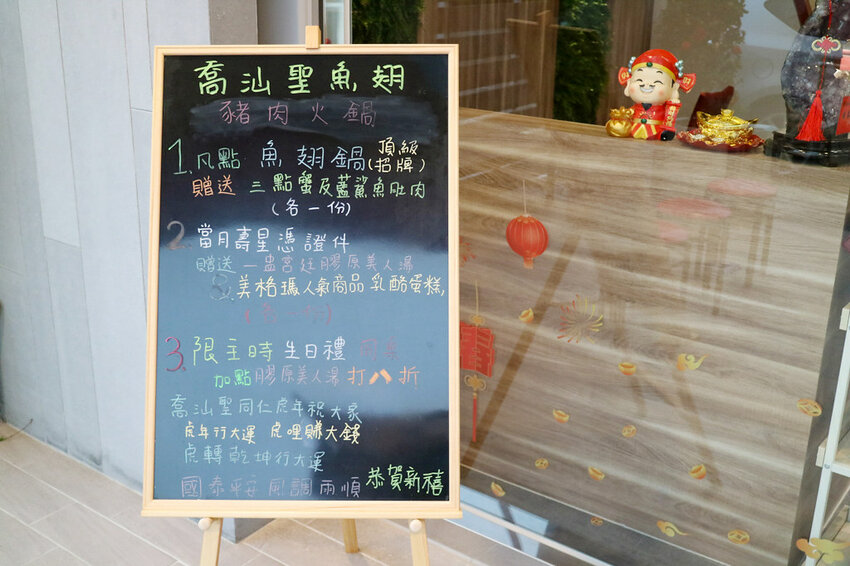 喬汕聖魚翅
豬肉火鍋
1. 凡點 魚翅鍋 頂級(招牌)
贈送 三點蟹及藍鯊魚肚肉
(各一份)
2. 當月壽星憑證件
贈送 一盅宮廷膠原美人湯
及美格瑪人氣商品 乳酪蛋糕,
3. 限主時 生日禮
加點膠原美人湯 打八折
喬汕聖同仁虎年祝大家
虎年行大運 虎哩賺大錢
虎轉乾坤行大運
國泰平安 風調雨順 恭賀新禧